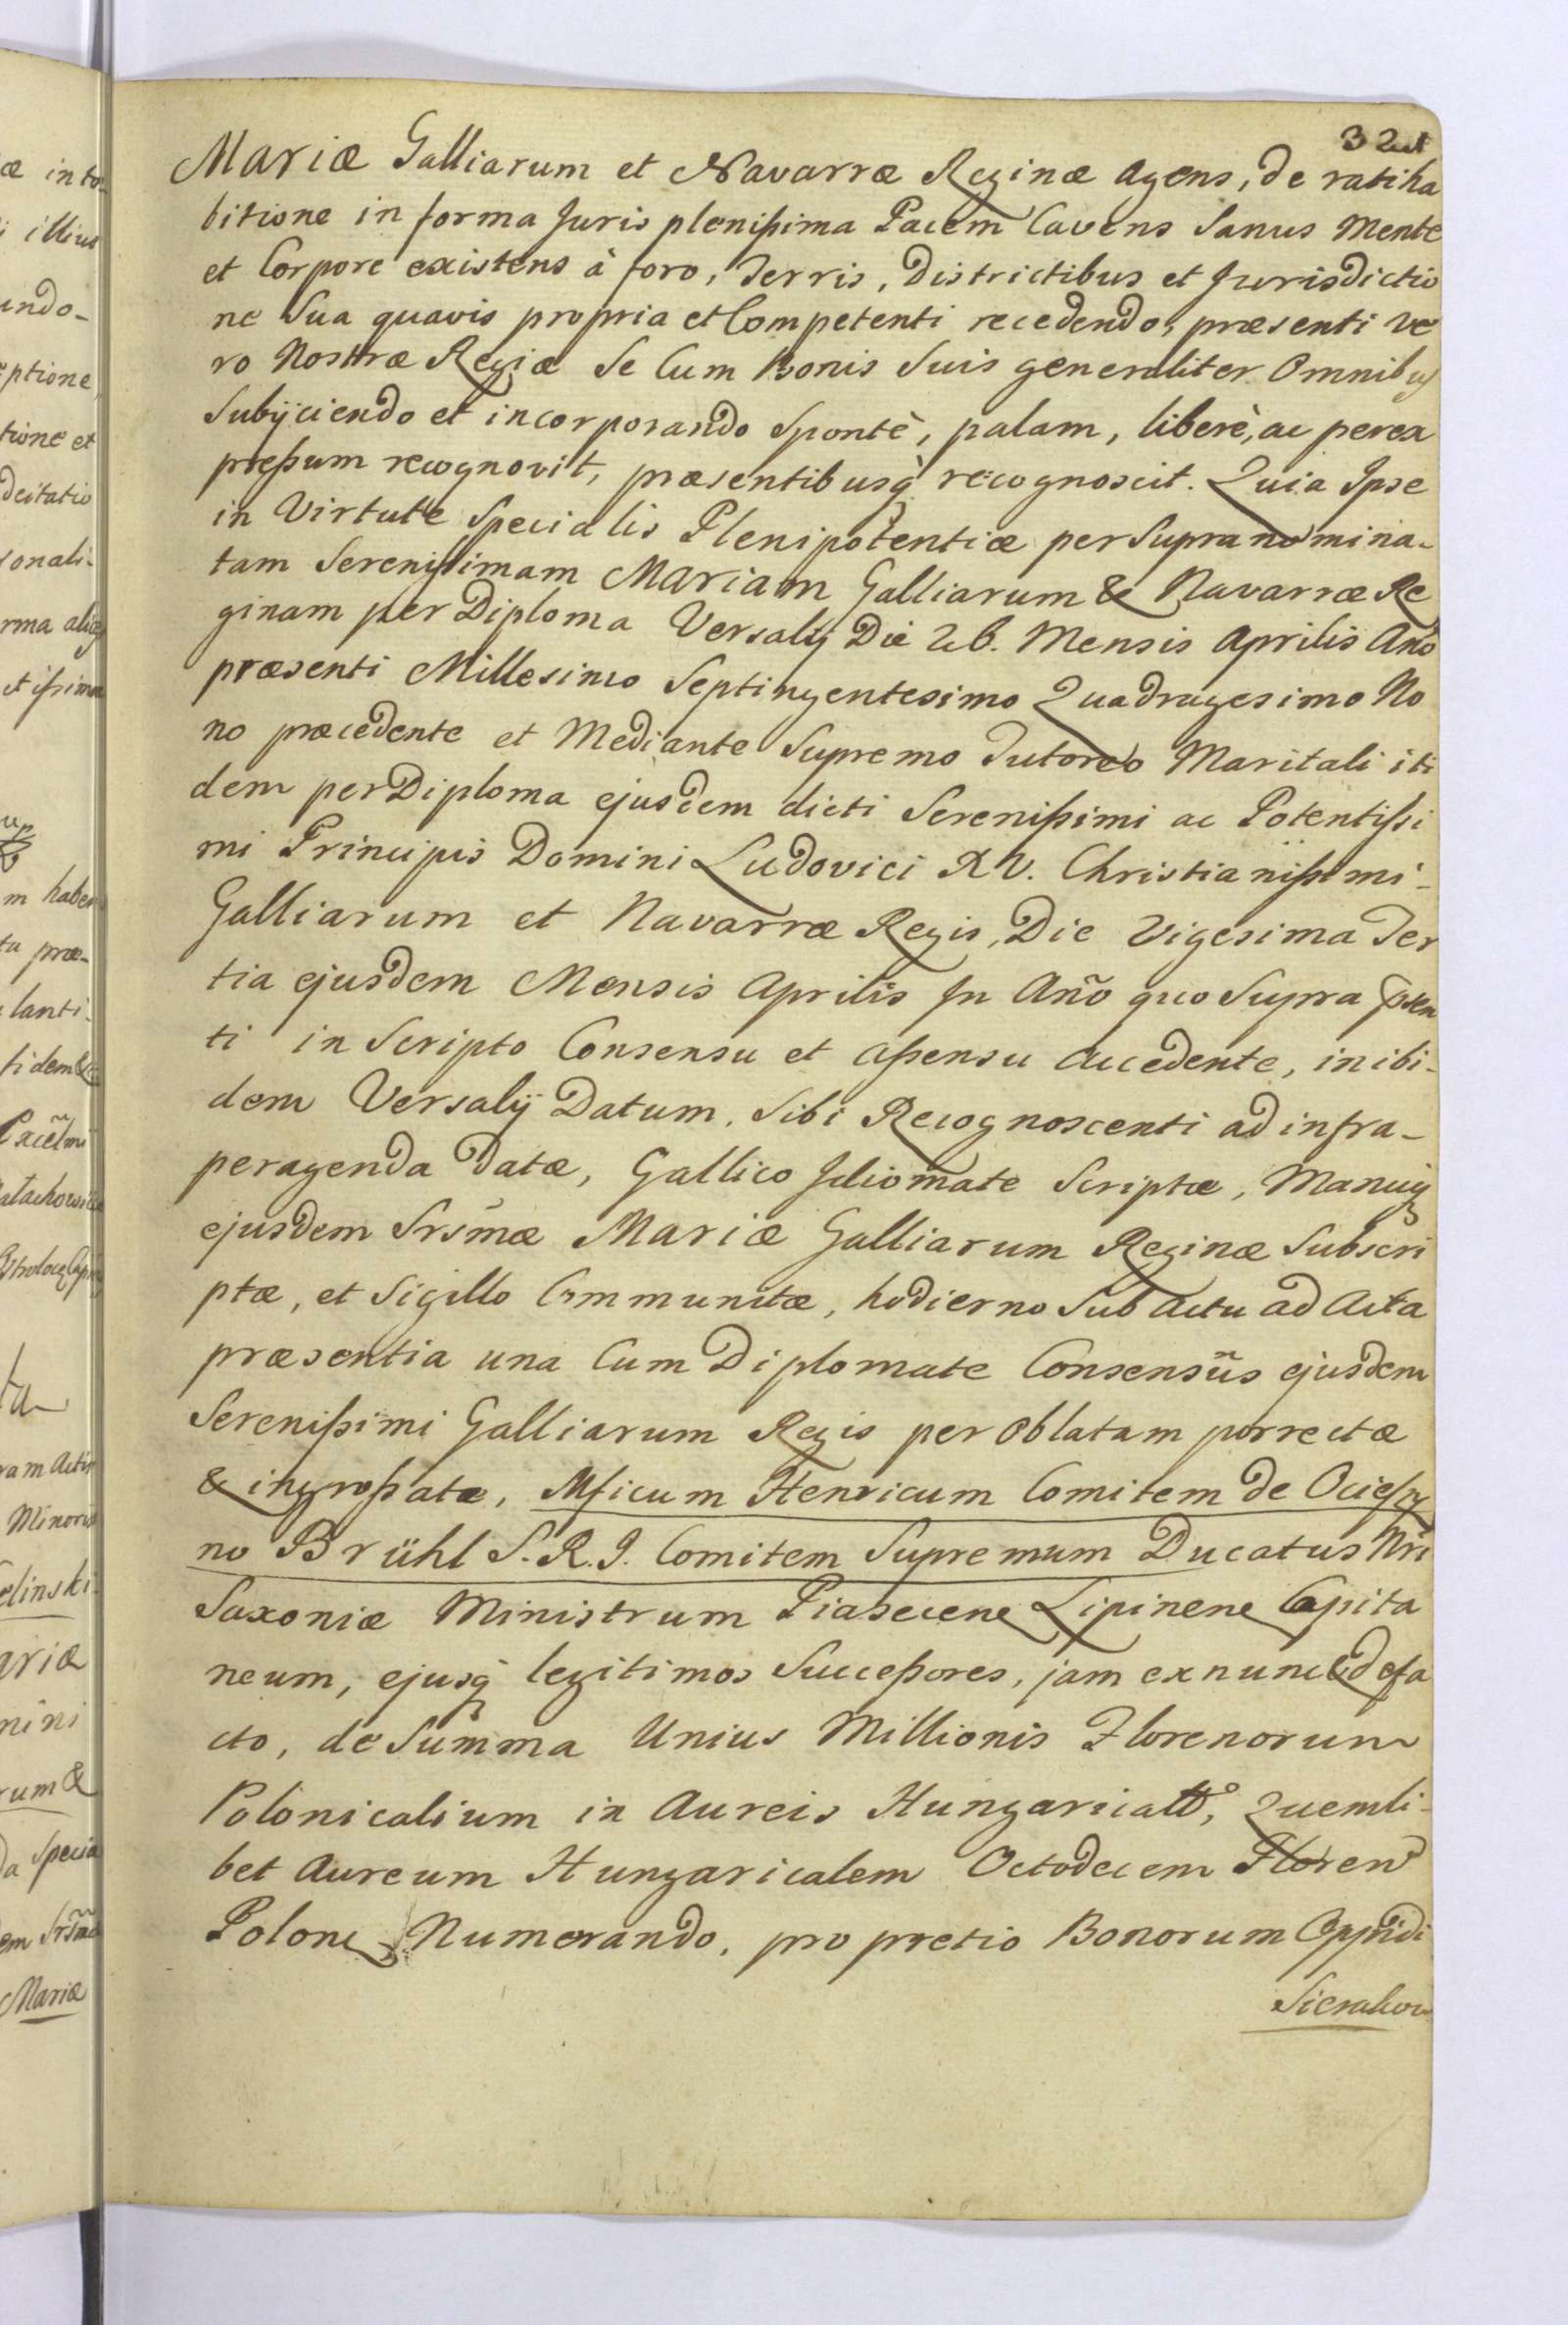 Mariæ Galliarum et Navarræ Reginæ Agens, de ratiha
bitione in forma Juris plenißima Pacem Cavens Sanus Mente
et Corpore existens à foro, Terris, Districtibus et Jurisdictio
ne Sua quavis propria et Competenti recedendo, præsenti Ve
ro Nostræ Regiæ Se Cum Bonis Suis generaliter Omnibus
Subÿciendo et incorporando Spontè, palam, liberè, ac perex
preßum recognovit, præsentibusq̀ recognoscit. Quia Ipse
in Virtute Specialis Plenipotentiæ per Supranomina-
tam Serenißimam Mariam Galliarum & Navarræ Re
ginam per Diploma Versalÿ Die 26. Mensis Aprilis Año
præsenti Millesimo Septingentesimo Quadragesimo No
no præcedente et Mediante Supremo Tutoreo Maritali iti
dem per Diploma ejusdem dicti Serenißimi ac Potentißi
mi Principis Domini Ludovici XV. Christianißimi-
Galliarum et Navarræ Regis, Die Vigesima Ter
tia ejusdem Mensis Aprilis In Año quo Supra
ti in Scripto Consensu et Aßensu Accedente, inibi-
dem Versalÿ Datum, Sibi Recognoscenti ad infra-
peragenda datæ, Gallico Idiomate Scriptæ, Manuq
ejusdem Srs̃mæ Mariæ Galliarum Reginæ Subscri
ptæ, et Sigillo Communitæ, hodierno Sub Actu ad Acta
præsentia una Cum Diplomate Consensũs ejusdem
Serenißimi Galliarum Regis per Oblatam porrectæ
& ingroßatæ, Mficum Henricum Comitem de Ocieszy
no Brühl S.R.I. Comitem Supremum Ducatus Nri
Saxoniæ Ministrum Piasecene Lipinene Capita
neum, ejusq̀ legitimos Succeßores, jam ex nunc & defa
cto, de Summa Unius Millionis Florenorum
Polonicalium in Aureis Hungarical̃, Quemli-
bet Aureum Hungaricalem Octodecem Floren
Polone Numerando, pro pretio Bonorum Oppidi
Sierakow